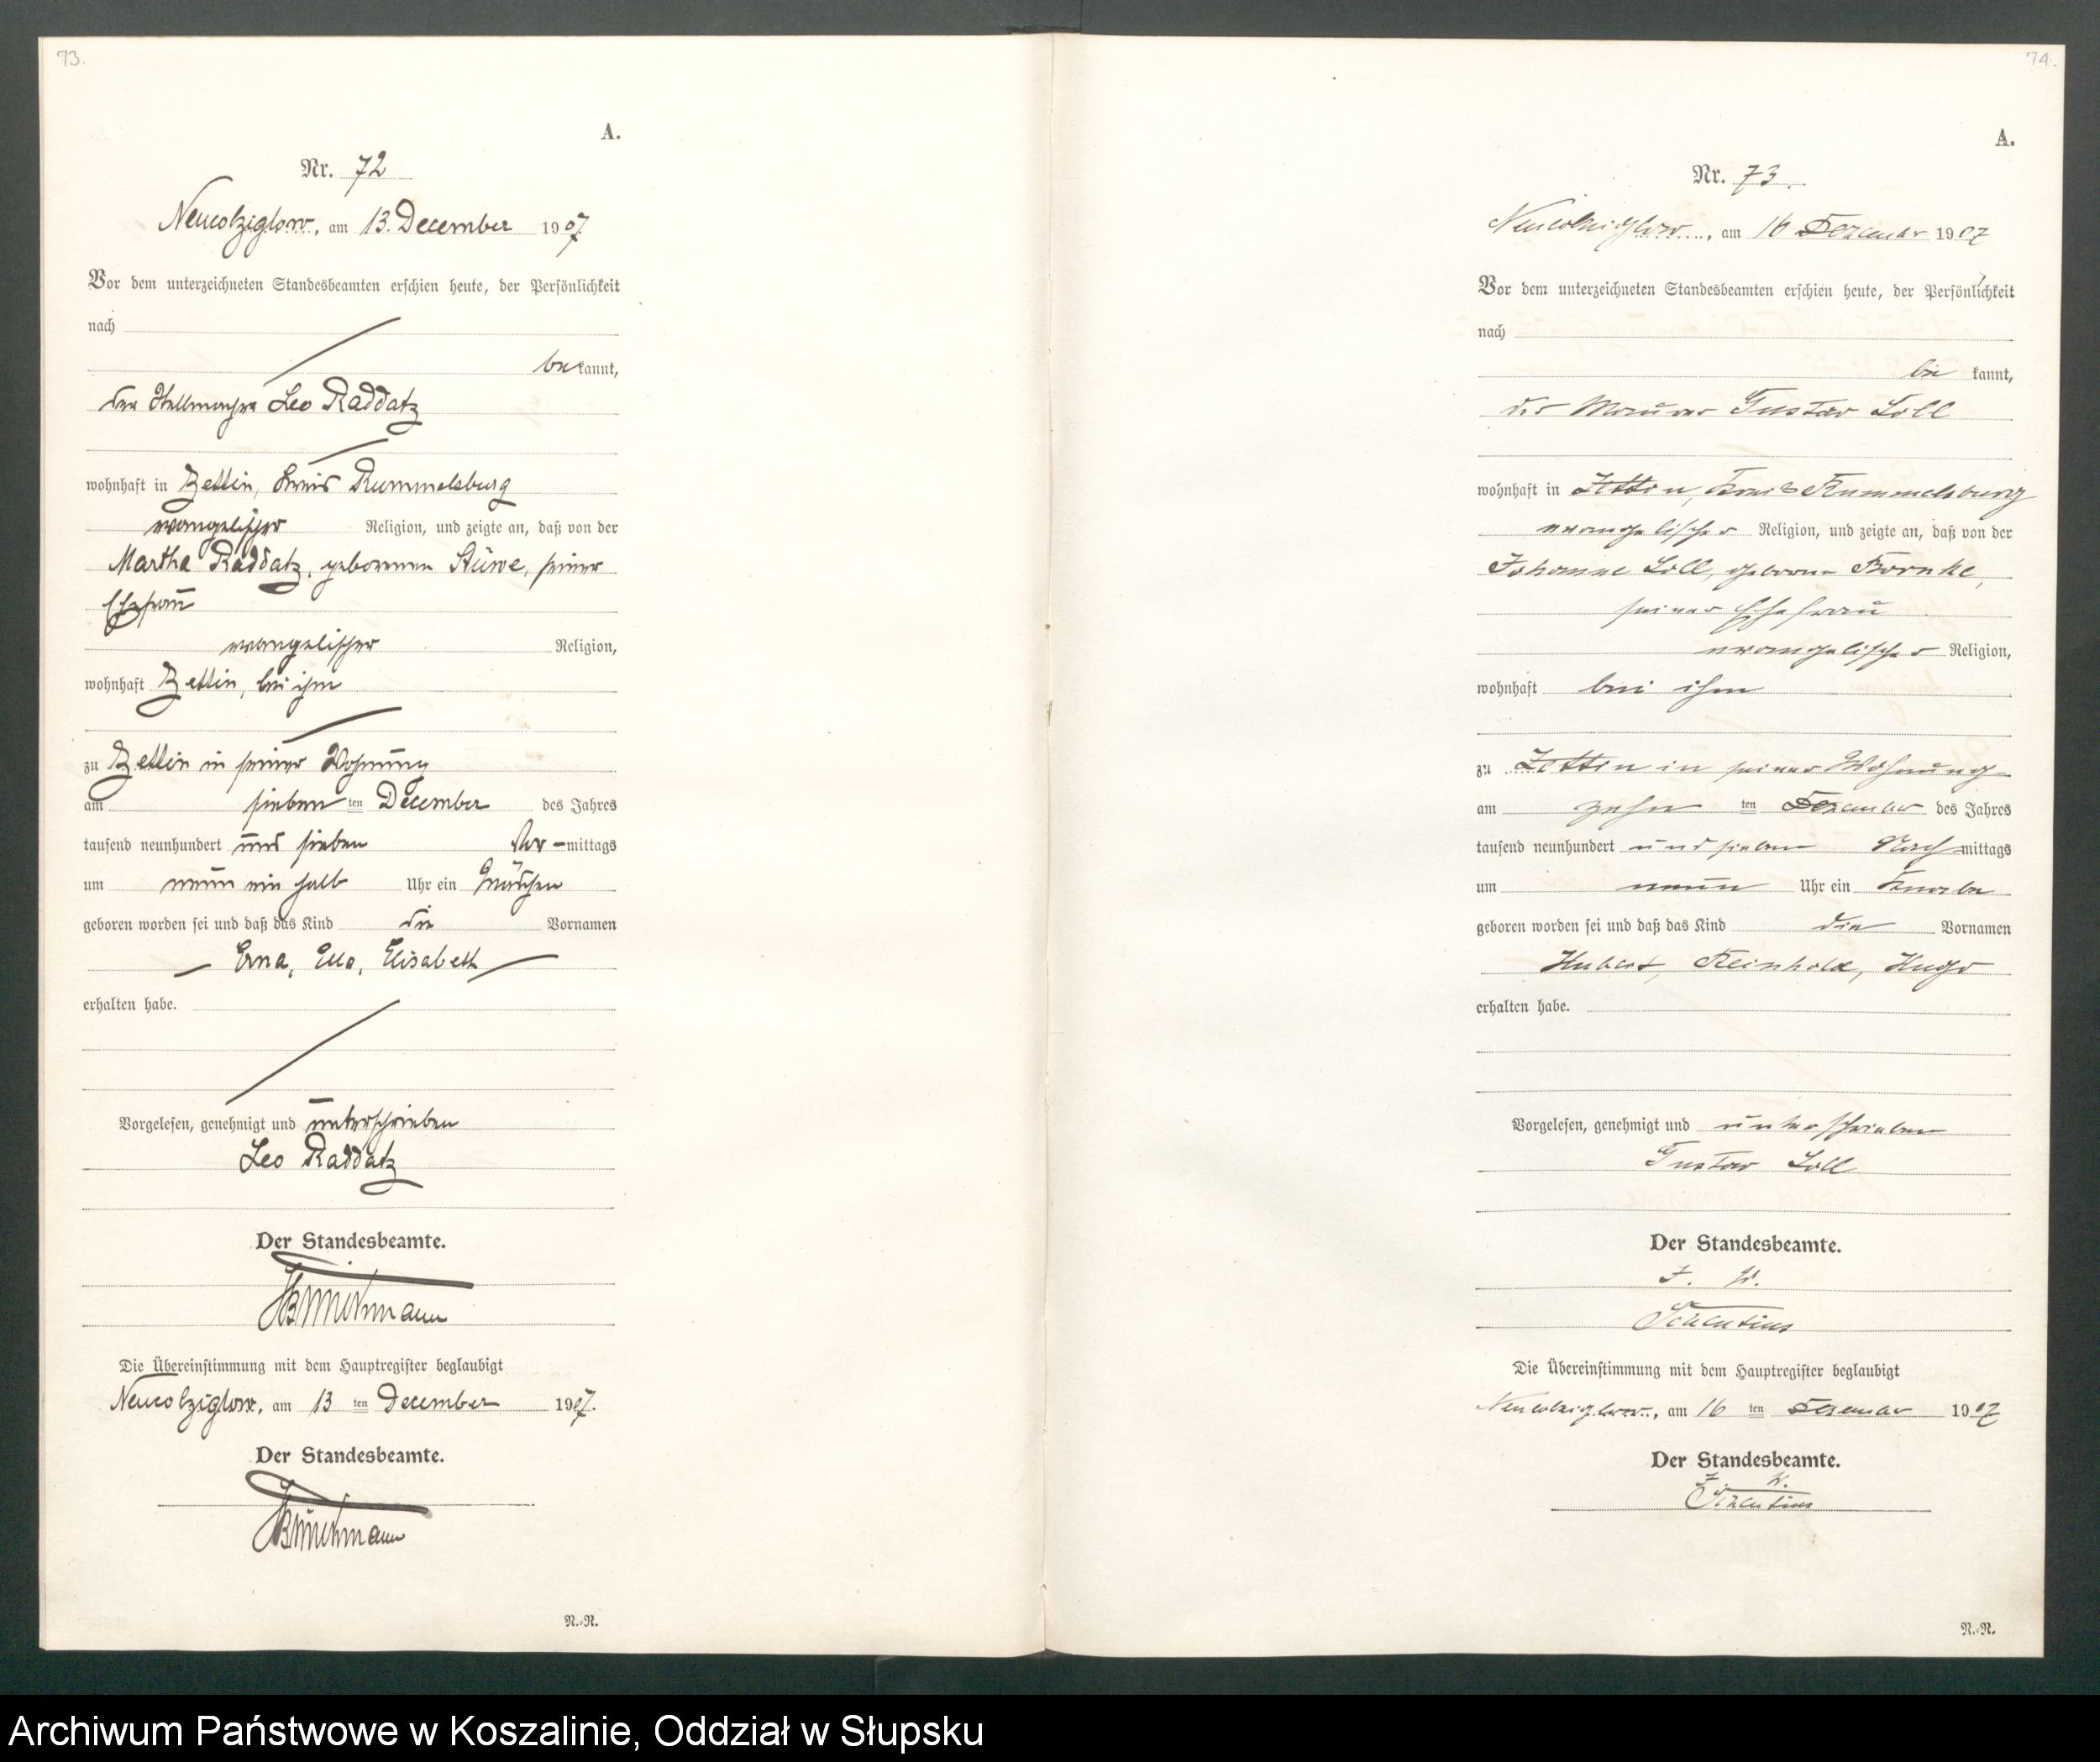 73.
A.
Nr. 72
Neucolziglow, am 13. December 1907.
Vor dem unterzeichneten Standesbeamten erschien heute, der Persönlichkeit
nach
bekannt,
der Stellmacher Leo Raddatz
wohnhaft in Zettin, Kreis Rummelsburg
evangelischer Religion, und zeigte an, daß von der
Martha Raddatz, geborenen Stüwe, seiner
Ehefrau
evangelischer Religion,
wohnhaft Zettin, bei ihm
zu Zettin in seiner Wohnung
am sieben ten December des Jahres
tausend neunhundert und sieben Vor-mittags
um neun ein halb Uhr ein Mädchen
geboren worden sei und daß das Kind die Vornamen
Erna, Ella, Elisabeth
erhalten habe.
Vorgelesen, genehmigt und unterschrieben
Leo Raddatz
Der Standesbeamte.
Die Übereinstimmung mit dem Hauptregister beglaubigt
Neucolziglow, am 13 ten December 1907.
Der Standesbeamte.
N.-N.
74.
A.
Nr. 73.
Neucolziglow, am 16 Dezember 1907
Vor dem unterzeichneten Standesbeamten erschien heute, der Persönlichkeit
nach
be kannt,
der Maurer Gustav Loll
wohnhaft in Zettin, Kreis Rummelsburg
evangelischer Religion, und zeigte an, daß von der
Johanne Loll, geborene
seiner Ehefrau
evangelischer Religion,
wohnhaft bei ihm
zu Zettin in seiner Wohnung
am zehn ten Dezember des Jahres
tausend neunhundert und sieben Nach mittags
um neun Uhr ein Knabe
geboren worden sei und daß das Kind die Vornamen
Hubert, Reinhold, Hugo
erhalten habe.
Vorgelesen, genehmigt und unterschrieben
Gustav Loll
Der Standesbeamte.
Die Übereinstimmung mit dem Hauptregister beglaubigt
Neucolziglow, am 16 ten Dezember 1907
Der Standesbeamte.
N.-N.
Archiwum Państwowe w Koszalinie, Oddział w Słupsku